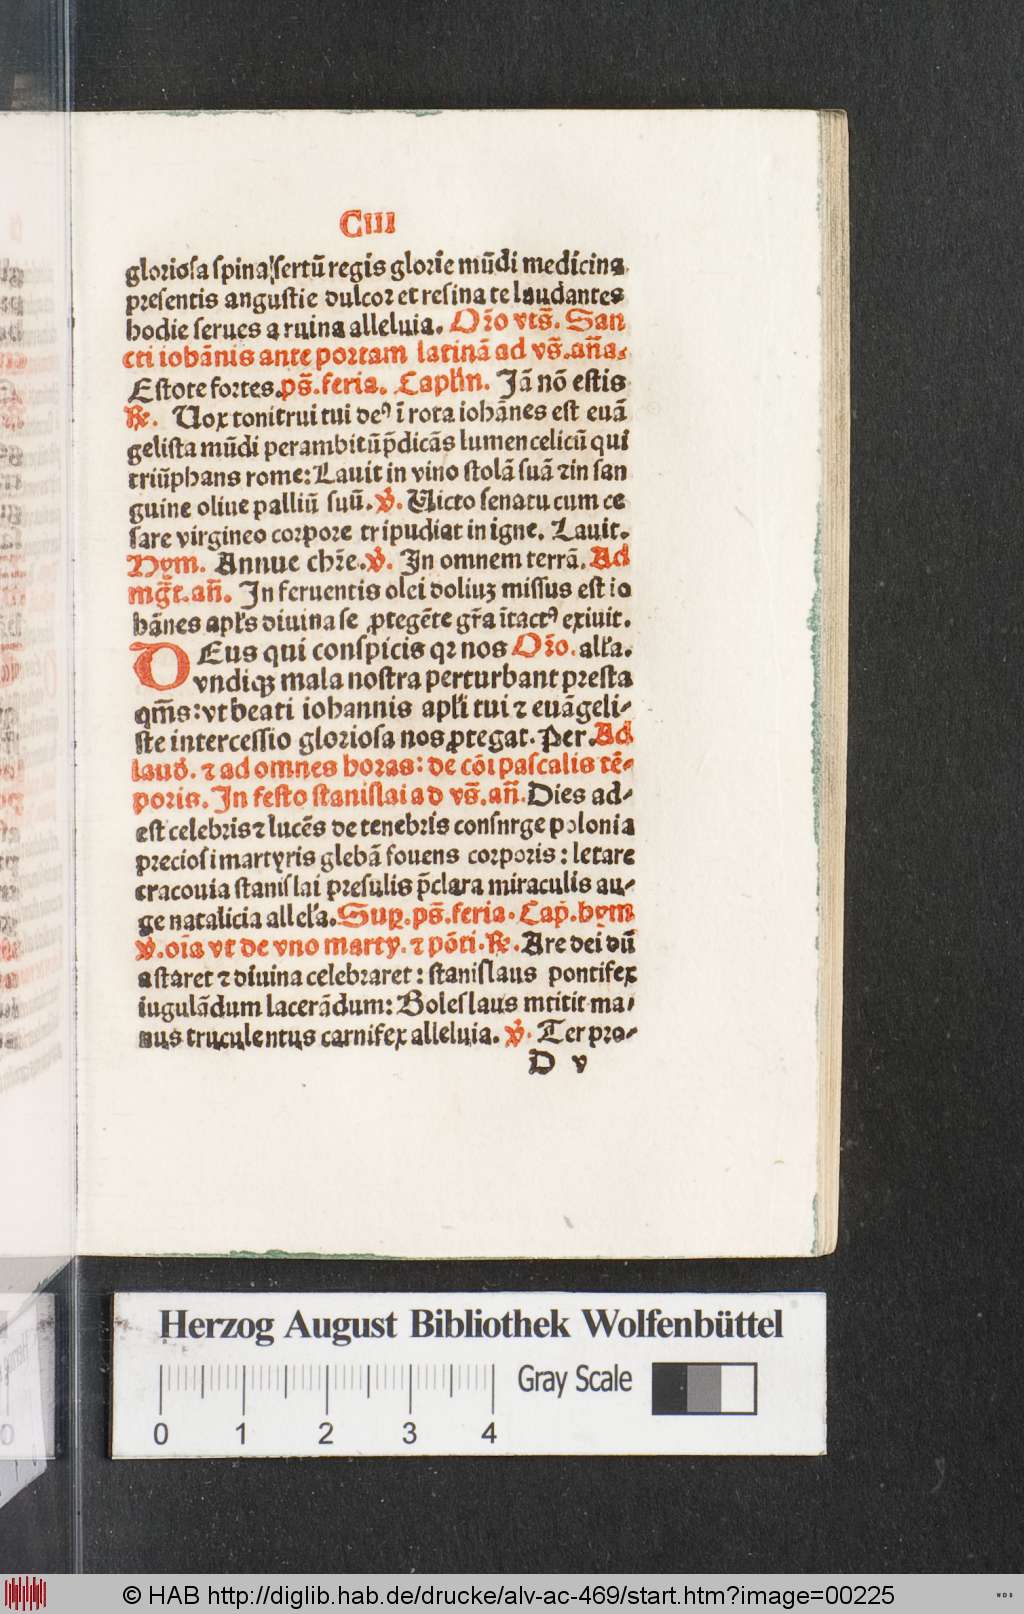 CIII
gloriosa spina/sertū regis glorie mūdi medicina
presentis angustie dulcor et resina te laudantes
hodie serues a ruina alleluia. Oro vts̄. San
cti iohānis ante portam latinā ad vs̄.aña.
Estote fortes.ps̄.feria. Caplm̄. Jā nō estis
℟. Uox tonitrui tui deꝰ ī rota iohānes est euā
gelista mūdi perambitū p̄dicās lumen celicū qui
triūphans rome: Lauit in vino stolā suā ⁊in san
guine oliue palliū suū. ℣. Uicto senatu cum ce
sare virgineo corpore tripudiat in igne. Lauit.
Hym. Annue chr̄e. ℣. In omnem terrā. Ad
mgr̄t.añ. In feruentis olei doliuꝫ missus est io
hānes apl̄s diuina se ꝓtegēte gr̄a ītactꝰ exiuit.
DEus qui conspicis qꝛ nos Oro. all'a.
vndiqꝫ mala nostra perturbant presta
qm̄s: vt beati iohannis apl̄i tui ⁊ euāgeli-
ste intercessio gloriosa nos ꝓtegat. Per. Ad
laud. ⁊ ad omnes horas: de cōi pascalis tē-
poris. In festo stanislai ad vs̄.añ. Dies ad-
est celebris⁊ lucēs de tenebris consnrge polonia
preciosi martyris glebā fouens corporis: letare
cracouia stanislai presulis p̄clara miraculis au-
ge natalicia allel'a. Suꝑ.ps̄.feria. Cap̄.hym
℣.oīa vt de vno marty. ⁊ pōti. ℟. Are dei dū
astaret ⁊ diuina celebraret: stanislaus pontifex
iugulādum lacerādum: Boleslaus mtitit ma-
nus truculentus carnifex alleluia. ℣. Ter pro-
D v
Herzog August Bibliothek Wolfenbüttel
Gray Scale
0 1 2 3 4
© HAB http://diglib.hab.de/drucke/alv-ac-469/start.htm?image=00225